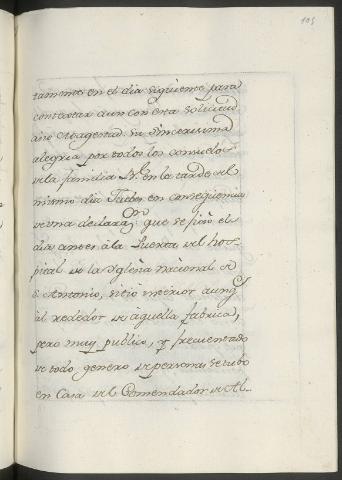 105
tammte en el dia siguiente para
contextar aun con esta solicitud
añe Magestad su Sincerisima
alegria por todos los consuelos
de la familia Rl. en la tarde del
mismo dia Juebes en conseqüencia
de una declaraⁿ que se fixó el
dia antes à la Puerta del hos-
pital de la Yglesia nacional de
S. Antonio, sitio interior aunqᵉ
àl rededor de aquella fabrica,
pero muy publico, y frecuentado
de todo genero de personas se tubo
en Casa del Comendador de Al-